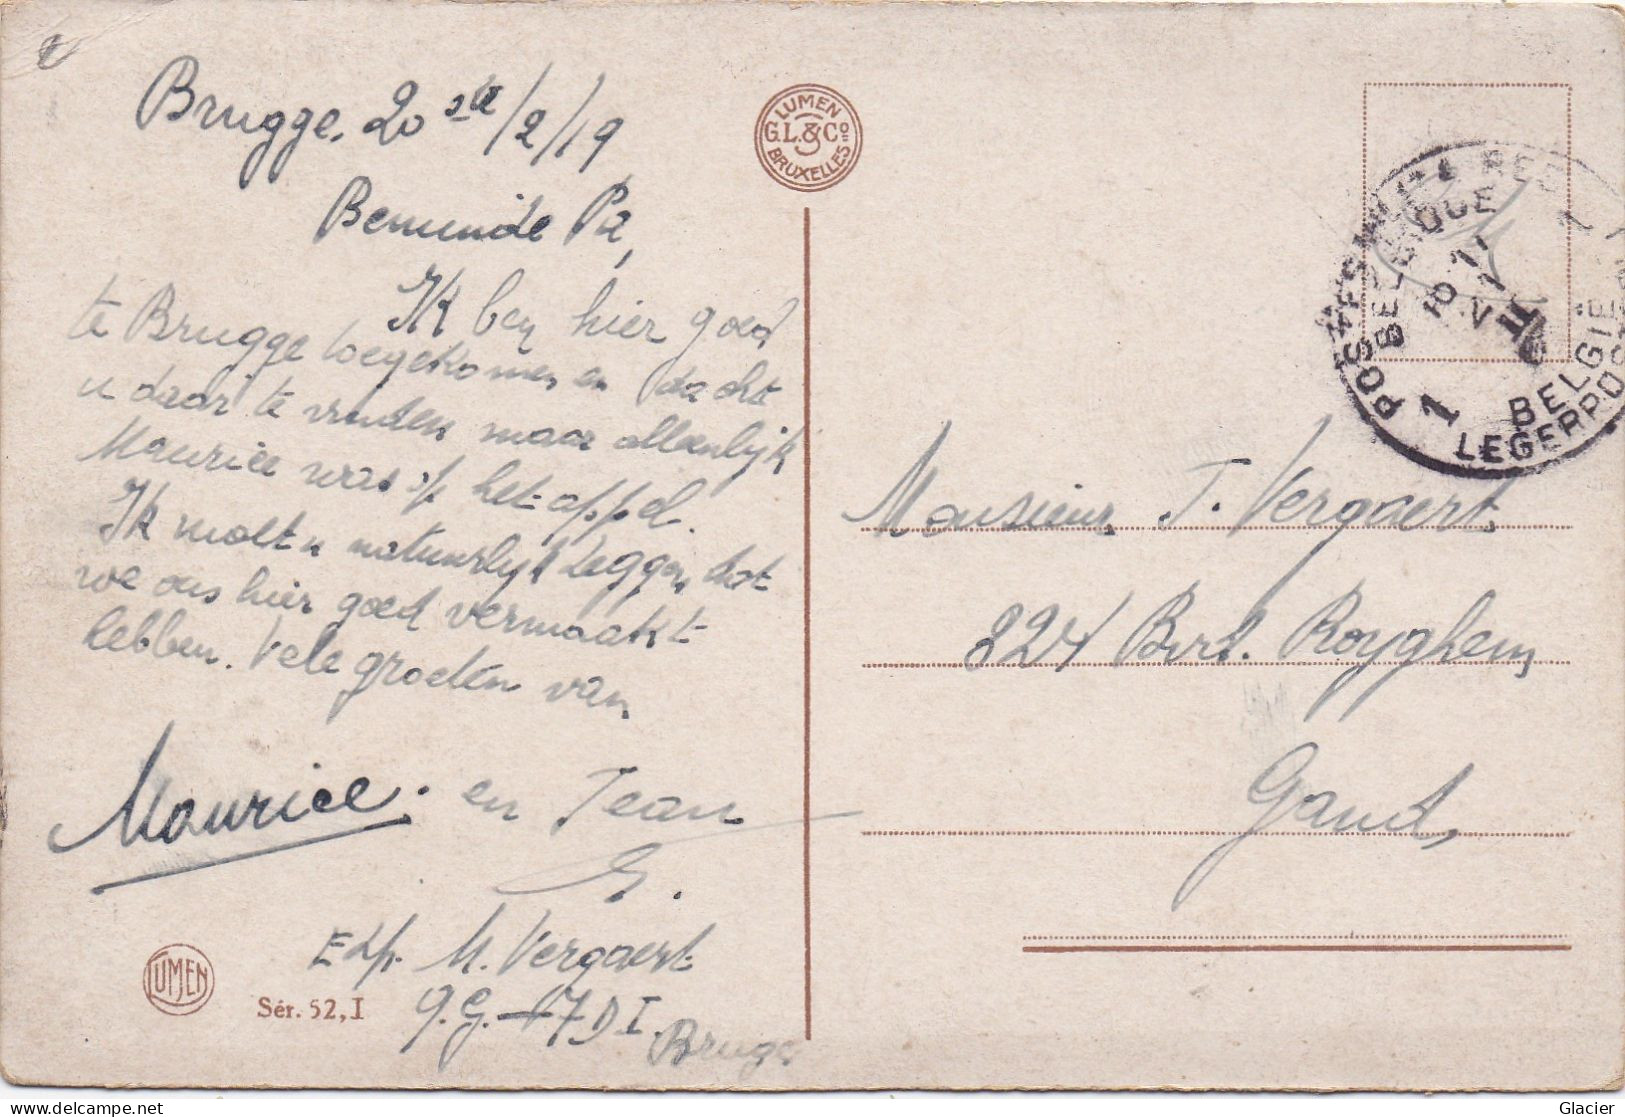 Brugge, 20 ste/2/19
Beminde Pa,
Ik ben hier goed
te Brugge toegekomen en dacht
u daar te vinden maar allenlijk
Maurice was op het appel.
Ik moet u natuurlijk zeggen dat
we ons hier goed vermaakt
hebben. Vele groeten van
Maurice. en Jean
Exp. M. Vergaert
9.G.-7 D I.
Brugge
LUMEN
Sér. 52, I
LUMEN
G.L.&Co
BRUXELLES
POSTES MILITAIRES
BELGIQUE
1
BELGIË
LEGERPOST
Monsieur J. Vergaert
224 Bvd. Royghem
Gand,
delcampe.net
Glacier